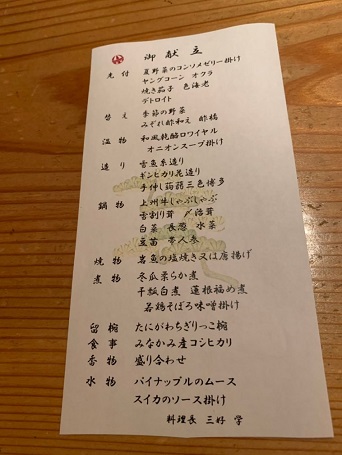 御献立
先付 夏野菜のコンソメゼリー掛け
ヤングコーン オクラ
焼き茄子 色海老
デトロイト
替え 季節の野菜
みぞれ酢和え 酢橘
温物 和風乾酪ロワイヤル
オニオンスープ掛け
造り 雪魚糸造り
ギンヒカリ花造り
手伸し蒟蒻三色博多
鍋物 上州牛しゃぶしゃぶ
雪割り茸 〆治茸
白菜 長葱 水菜
豆苗 帯人参
焼物 岩魚の塩焼き又は唐揚げ
煮物 冬瓜柔らか煮
干瓢白煮 蓮根福め煮
若鶏そぼろ味噌掛け
留椀 たにがわちぎりっこ椀
食事 みなかみ産コシヒカリ
香物 盛り合わせ
水物 パイナップルのムース
スイカのソース掛け
料理長 三好 学